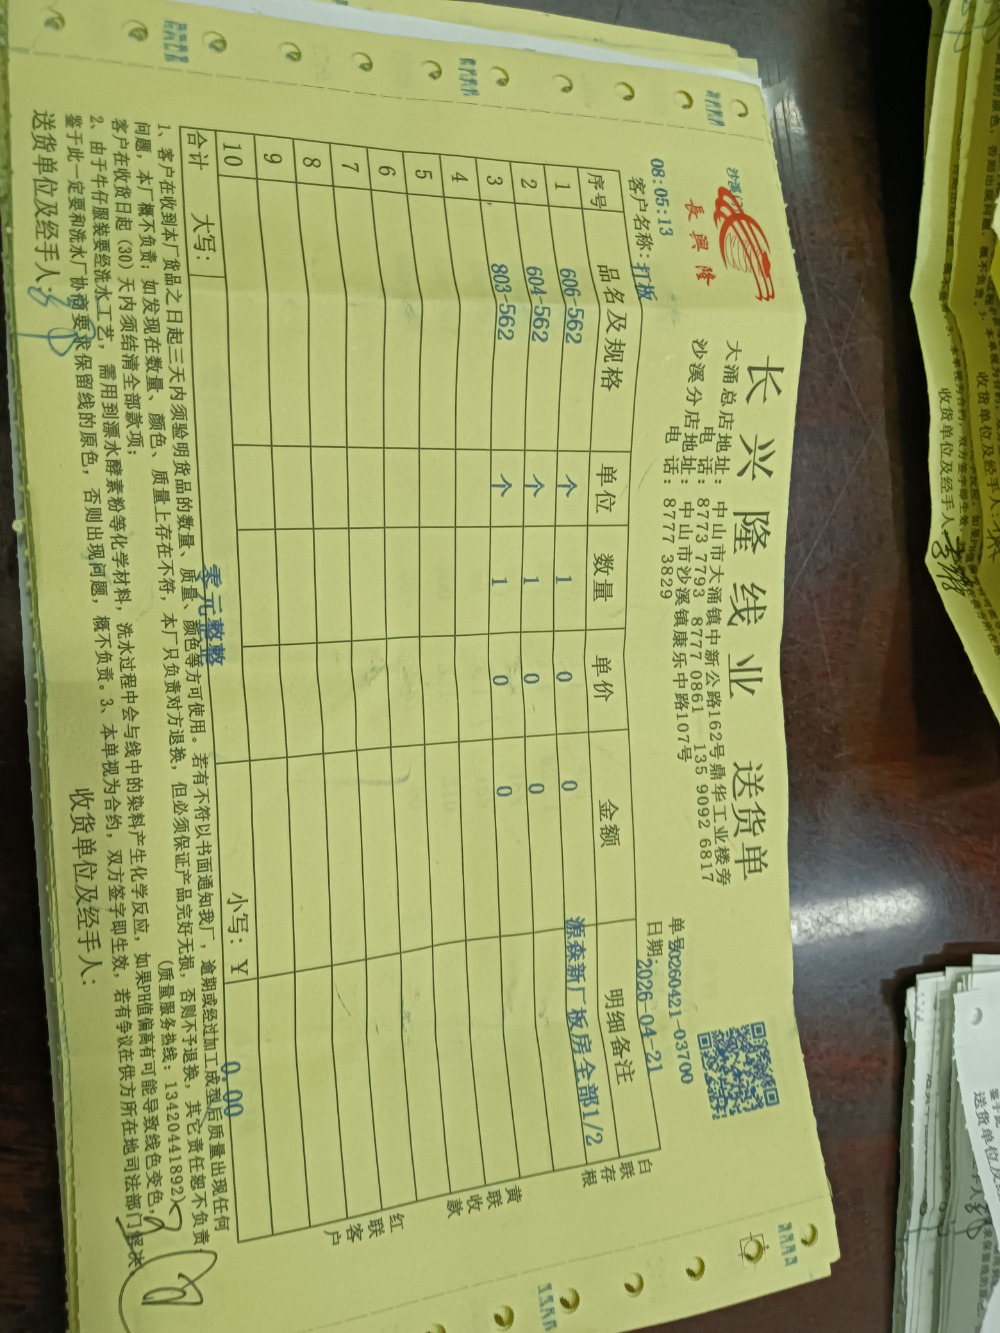 長興隆
长兴隆线业 送货单
大涌总店地址: 中山市大涌镇中新公路162号鼎华工业楼旁
电 话: 8773 7793 8777 0861 135 9092 6817
沙溪分店地址: 中山市沙溪镇康乐中路107号
电 话: 8777 3829
08:05:13
单号20260421-03700
客户名称: 打板
日期: 2026-04-21
序号 品名及规格 单位 数量 单价 金额 明细备注
1 606-562 个 1 0 0 源森新厂板房全部1/2
2 604-562 个 1 0 0
3 803-562 个 1 0 0
4
5
6
7
8
9
10
合计 大写: 零元整整 小写: ¥ 0.00
白联存根
黄联收款
红联客户
1、客户在收到本厂货品之日起三天内须验明货品的数量、质量、颜色等方可使用。若有不符以书面通知我厂,逾期或经过加工成型后质量出现任何
问题,本厂概不负责;如发现在数量、颜色、质量上存在不符,本厂只负责对方退换,但必须保证产品完好无损,否则不予退换,其它责任恕不负责,
客户在收货日起(30)天内须结清全部款项; (质量服务热线: 13420441892)
2、由于牛仔服装要经洗水工艺,需用到漂水酵素粉等化学材料,洗水过程中会与线中的染料产生化学反应,如果PH值偏高有可能导致线色变色,
鉴于此一定要和洗水厂协商要求保留线的原色,否则出现问题,概不负责。3、本单视为合约,双方签字即生效,若有争议在供方所在地司法部门解决
送货单位及经手人:
收货单位及经手人:
收货单位及经手人